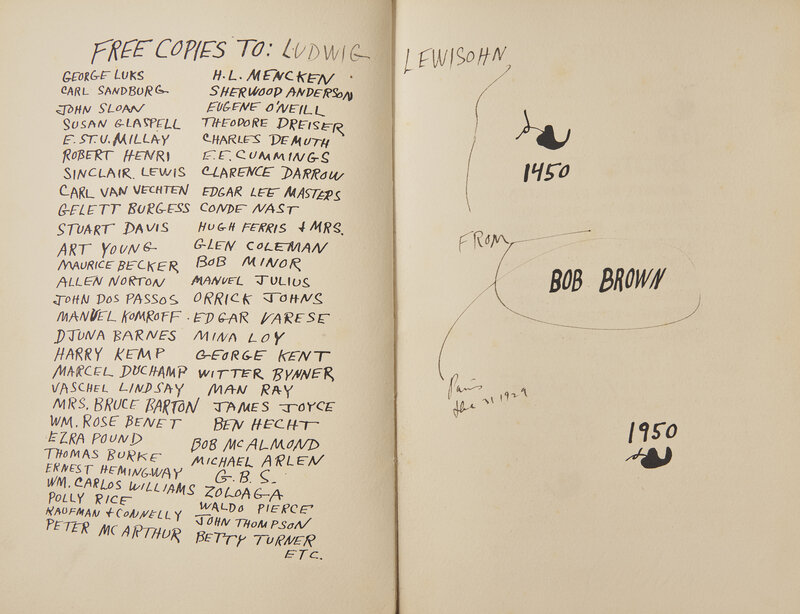 FREE COPIES TO: LUDWIG LEWISOHN
GEORGE LUKS
CARL SANDBURG
JOHN SLOAN
SUSAN GLASPELL
E. ST. V. MILLAY
ROBERT HENRI
SINCLAIR LEWIS
CARL VAN VECHTEN
GELETT BURGESS
STUART DAVIS
ART YOUNG
MAURICE BECKER
ALLEN NORTON
JOHN DOS PASSOS
MANUEL KOMROFF
DJUNA BARNES
HARRY KEMP
MARCEL DUCHAMP
VASCHEL LINDSAY
MRS. BRUCE BARTON
WM. ROSE BENET
EZRA POUND
THOMAS BURKE
ERNEST HEMINGWAY
WM. CARLOS WILLIAMS
POLLY RICE
KAUFMAN + CONNELLY
PETER MC ARTHUR
H.L. MENCKEN
SHERWOOD ANDERSON
EUGENE O'NEILL
THEODORE DREISER
CHARLES DEMUTH
E.E. CUMMINGS
CLARENCE DARROW
EDGAR LEE MASTERS
CONDE NAST
HUGH FERRIS + MRS.
GLEN COLEMAN
BOB MINOR
MANUEL JULIUS
ORRICK JOHNS
EDGAR VARESE
MINA LOY
GEORGE KENT
WITTER BYNNER
MAN RAY
JAMES JOYCE
BEN HECHT
BOB MCALMOND
MICHAEL ARLEN
G.B.S.
ZOLOAGA
WALDO PIERCE
JOHN THOMPSON
BETTY TURNER
ETC.
1450
FROM
BOB BROWN
Paris
Dec 31 1929
1950